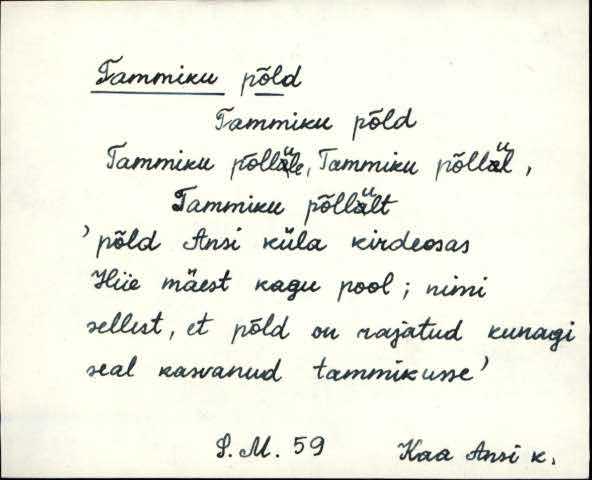 Tammiku põld
Tammiku põld
Tammiku põllüle, Tammiku põllül,
Tammiku põllült
'põld Ansi küla kirdeosas
Hiie mäest kagu pool; nimi
sellest, et põld on rajatud kunagi
seal kasvanud tammikusse'
S. M. 59 Kaa Ansi k.